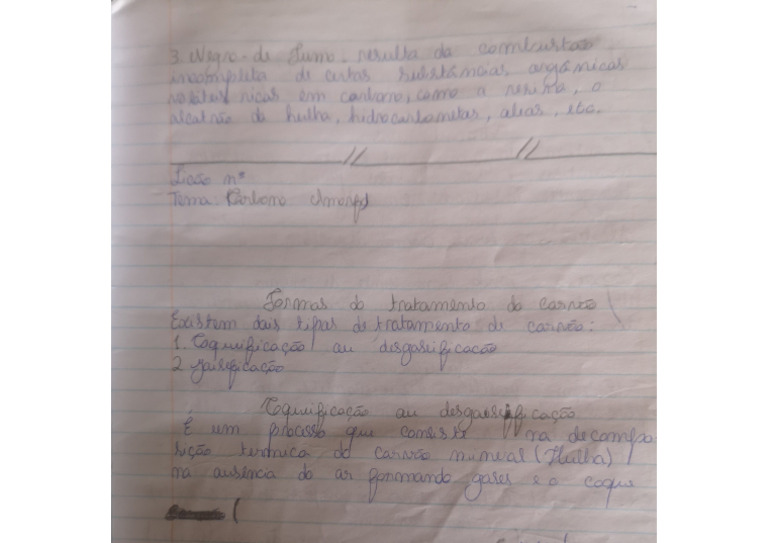 3. Negro-de Fumo. resulta da combustão
incompleta de certas substâncias orgânicas
voláteis ricas em carbono, como a resina, o
alcatrão da hulha, hidrocarbonetas, aleas, etc.
// //
Lição nº
Tema: Carbono Amorfo
Formas do tratamento do carvão
Existem dois tipos de tratamento de carvão:
1. Coqueificação ou desgaseificação
2 gaseificação
Coqueificação ou desgaseificação
É um processo que consiste na decompo
sição térmica do carvão mineral (Hulha)
na ausência do ar formando gases e o coque
(